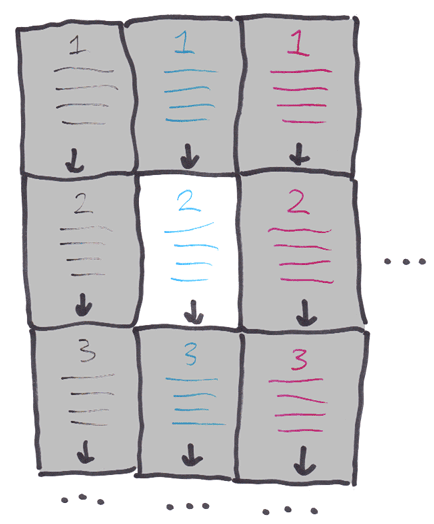 1 1 1
2 2 2
...
3 3 3
... ... ...